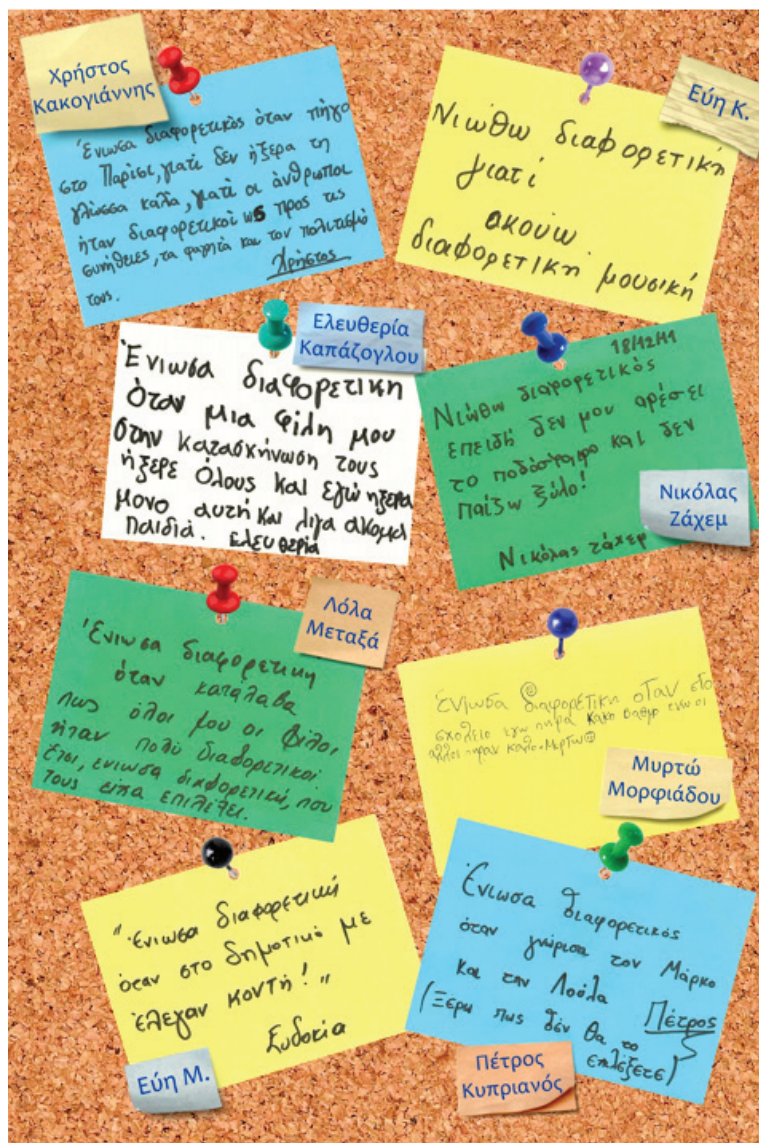 Χρήστος
Κακογιάννης
Ένιωσα διαφορετικός όταν πήγα
στο Παρίσι, γιατί δεν ήξερα τη
γλώσσα καλά, γιατί οι άνθρωποι
ήταν διαφορετικοί ως προς τις
συνήθειες, τα φαγητά και τον πολιτισμό
τους.
Χρήστος
Εύη Κ.
Νιώθω διαφορετική
γιατί
ακούω
διαφορετική μουσική
Ελευθερία
Καπάζογλου
Ένιωσα διαφορετικη
όταν μια φίλη μου
στην κατασκήνωση τους
ήξερε όλους και εγώ ηξερα
μονο αυτή και λιγα ακομα
παιδιά. Ελευθερία
18/12/11
Νιώθω διαφορετικός
επειδή δεν μου αρέσει
το ποδόσφαιρο και δεν
παίζω ξύλο!
Νικόλας Ζάχεμ
Νικόλας
Ζάχεμ
Λόλα
Μεταξά
Ένιωσα διαφορετικη
όταν κατάλαβα
πως όλοι μου οι φίλοι
ήταν πολύ διαφορετικοί.
Έτσι, ενιωσα διαφορετική, που
τους είχα επιλέξει.
Ένιωσα διαφορετικη οταν στο
σχολειο εγω πηρα κακο βαθμο ενω οι
αλλοι πηραν καλο. Μυρτω
Μυρτώ
Μορφιάδου
"Ένιωσα διαφορετική
όταν στο δημοτικό με
έλεγαν κοντή!"
Ευδοκία
Εύη Μ.
Ένιωσα διαφορετικός
όταν γνώρισα τον Μάρκο
και την Λούλα Πέτρος
(Ξέρω πως δέν θα το
επιλέξετε)
Πέτρος
Κυπριανός